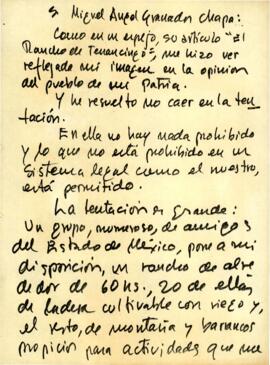 S Miguel Angel Granados Chapa:
Como en un espejo, su artículo "El
Rancho de Tenancingo", me hizo ver
reflejada mi imagen en la opinion
del pueblo de mi Patria.
Y he resuelto no caer en la ten
tación.
En ella no hay nada prohibido
y lo que no está prohibido en un
Sistema legal como el nuestro,
está permitido.
La tentación es grande:
Un grupo, numeroso, de amigos
del Estado de México, pone a mi
disposición, un rancho de alre
dedor de 60 hs., 20 de ellas
de ladera cultivable con riego y,
el resto, de montaña y barrancos
propicios para actividades que me